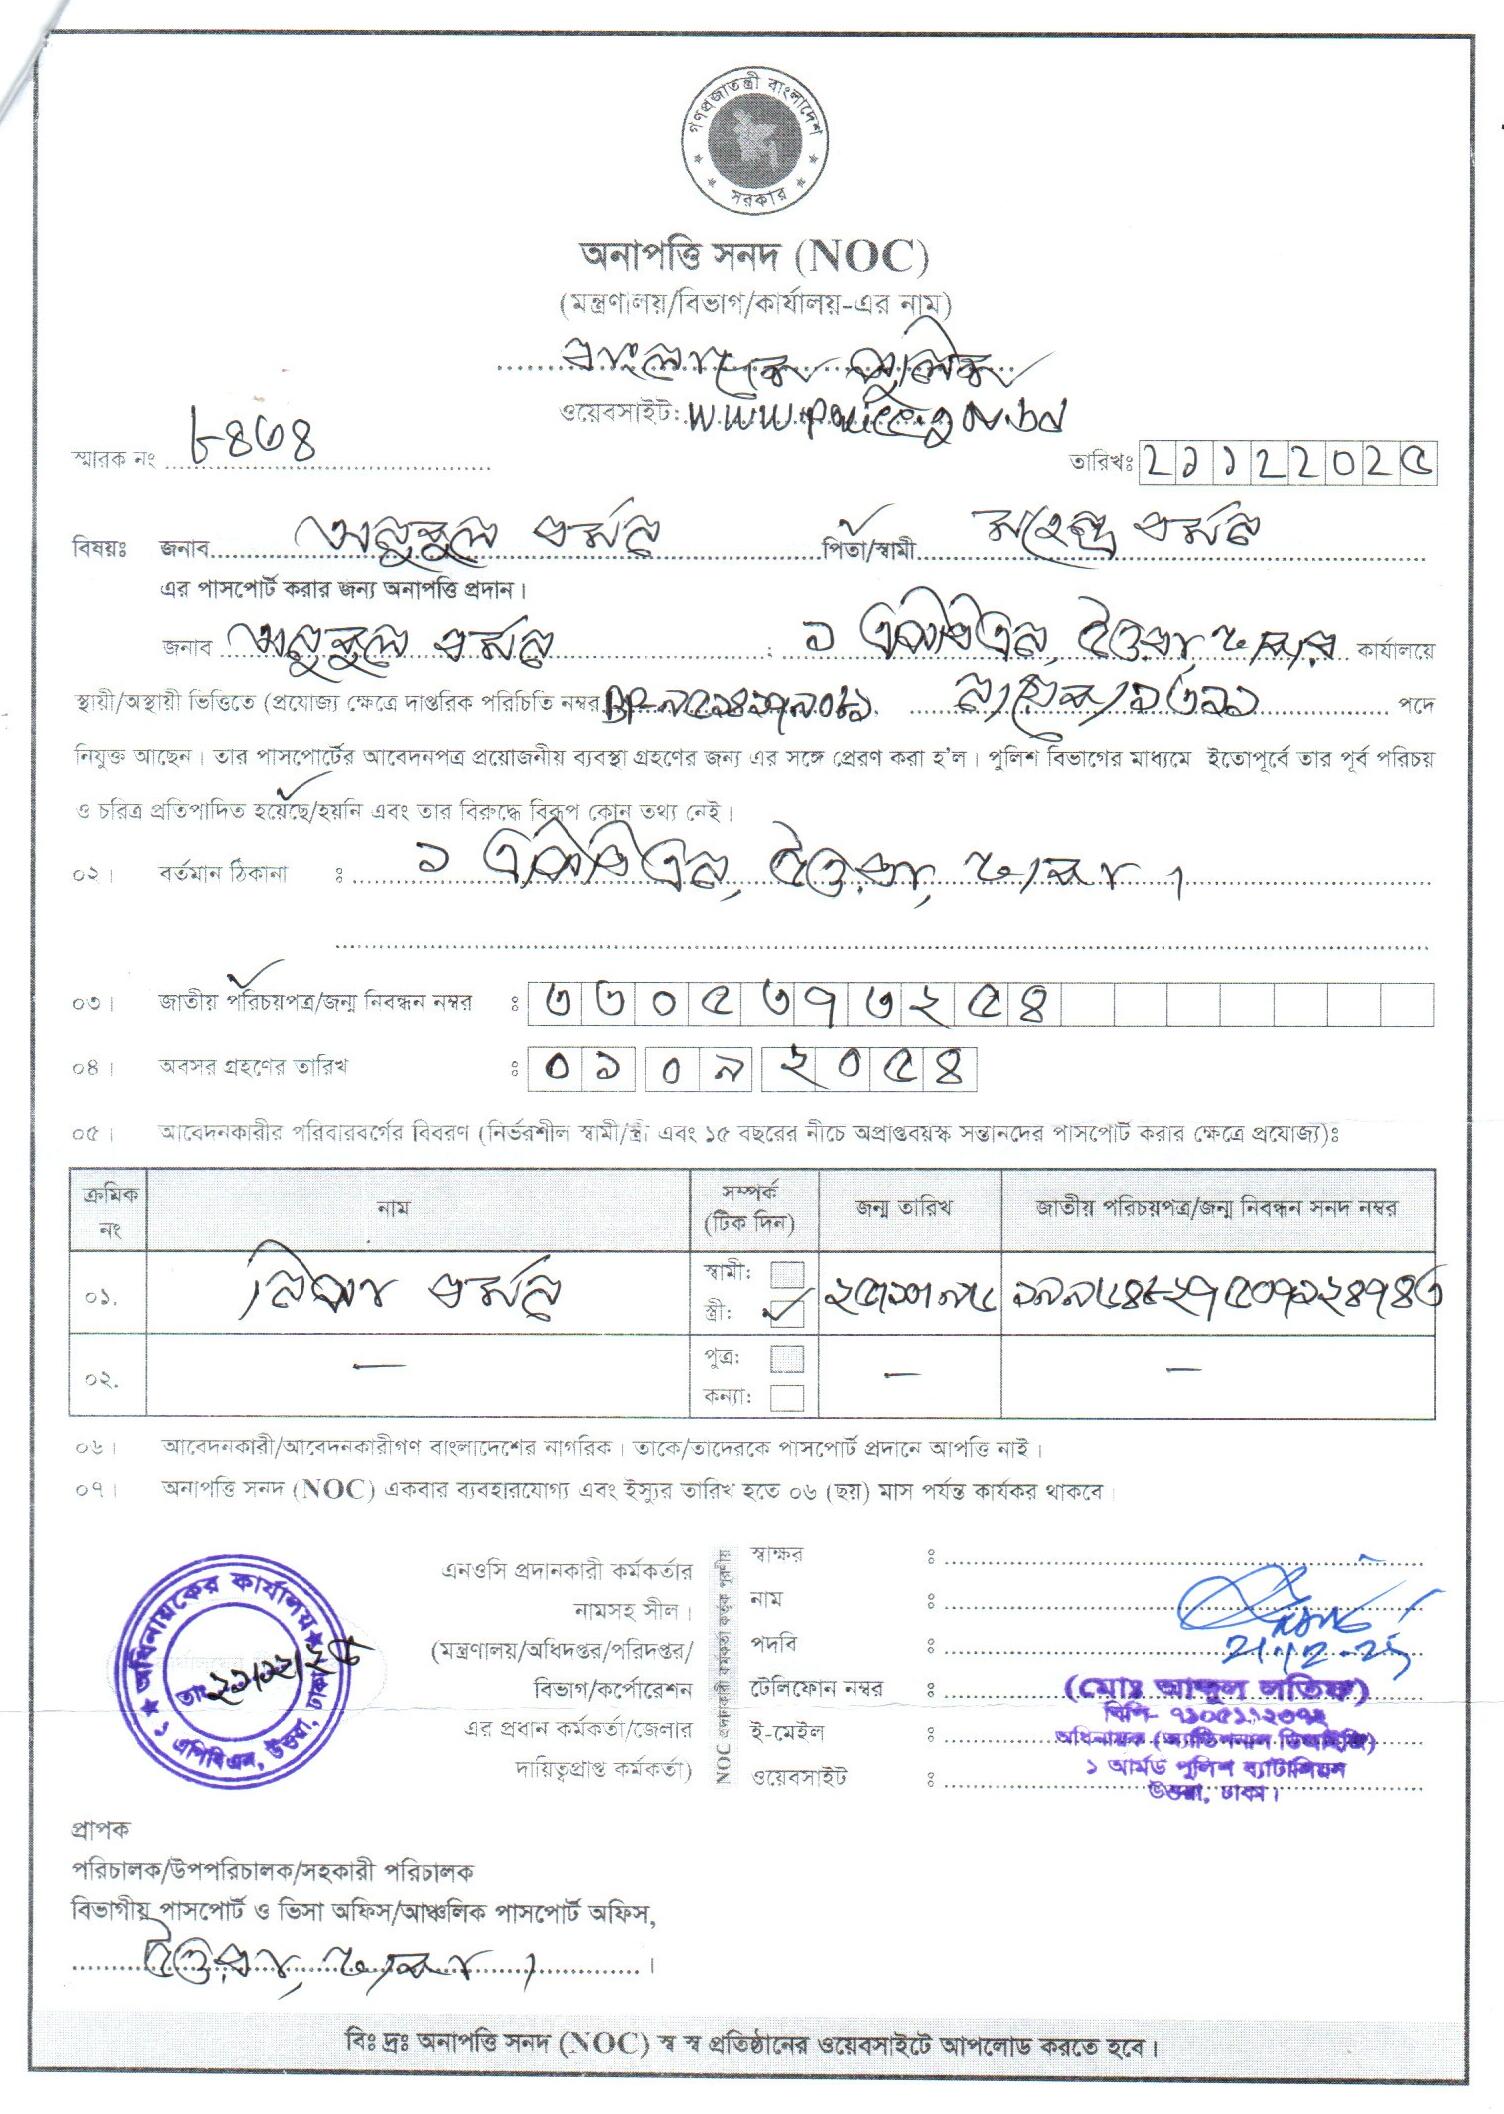 গণপ্রজাতন্ত্রী বাংলাদেশ
সরকার
অনাপত্তি সনদ (NOC)
(মন্ত্রণালয়/বিভাগ/কার্যালয়-এর নাম)
বাংলাদেশ পুলিশ
ওয়েবসাইট: www.police.gov.bd
স্মারক নং ৮৪৩৪
তারিখঃ 21122025
বিষয়ঃ জনাব অনুকুল বর্মন পিতা/স্বামী মহেন্দ্র বর্মন
এর পাসপোর্ট করার জন্য অনাপত্তি প্রদান।
জনাব অনুকুল বর্মন : ১ এপিবিএন, উত্তরা, ঢাকার কার্যালয়ে
স্থায়ী/অস্থায়ী ভিত্তিতে (প্রযোজ্য ক্ষেত্রে দাপ্তরিক পরিচিতি নম্বর BP- নায়েক/ পদে
নিযুক্ত আছেন। তার পাসপোর্টের আবেদনপত্র প্রয়োজনীয় ব্যবস্থা গ্রহণের জন্য এর সঙ্গে প্রেরণ করা হ'ল। পুলিশ বিভাগের মাধ্যমে ইতোপূর্বে তার পূর্ব পরিচয়
ও চরিত্র প্রতিপাদিত হয়েছে/হয়নি এবং তার বিরুদ্ধে বিরূপ কোন তথ্য নেই।
০২। বর্তমান ঠিকানা : ১ এপিবিএন, উত্তরা, ঢাকা।
০৩। জাতীয় পরিচয়পত্র/জন্ম নিবন্ধন নম্বর : ৩৩০৫৩৭৩২৫৪
০৪। অবসর গ্রহণের তারিখ : ০১ ০৯ ২০৫৪
০৫। আবেদনকারীর পরিবারবর্গের বিবরণ (নির্ভরশীল স্বামী/স্ত্রী এবং ১৫ বছরের নীচে অপ্রাপ্তবয়স্ক সন্তানদের পাসপোর্ট করার ক্ষেত্রে প্রযোজ্য)ঃ
ক্রমিক নং নাম সম্পর্ক (টিক দিন) জন্ম তারিখ জাতীয় পরিচয়পত্র/জন্ম নিবন্ধন সনদ নম্বর
০১. বর্মন স্বামী: স্ত্রী: ✓
০২. — পুত্র: কন্যা: — —
০৬। আবেদনকারী/আবেদনকারীগণ বাংলাদেশের নাগরিক। তাকে/তাদেরকে পাসপোর্ট প্রদানে আপত্তি নাই।
০৭। অনাপত্তি সনদ (NOC) একবার ব্যবহারযোগ্য এবং ইস্যুর তারিখ হতে ০৬ (ছয়) মাস পর্যন্ত কার্যকর থাকবে।
অধিনায়কের কার্যালয়
তাং ২১/১২/২৫
১ এপিবিএন, উত্তরা, ঢাকা
এনওসি প্রদানকারী কর্মকর্তার
নামসহ সীল।
(মন্ত্রণালয়/অধিদপ্তর/পরিদপ্তর/
বিভাগ/কর্পোরেশন
এর প্রধান কর্মকর্তা/জেলার
দায়িত্বপ্রাপ্ত কর্মকর্তা)
NOC প্রদানকারী কর্মকর্তা কর্তৃক পূরণীয়
স্বাক্ষর :
নাম :
পদবি :
টেলিফোন নম্বর :
ই-মেইল :
ওয়েবসাইট :
21.12.25
(মোঃ আব্দুল লতিফ)
বিপি-
অধিনায়ক (অ্যাডিশনাল ডিআইজি)
১ আর্মড পুলিশ ব্যাটালিয়ন
উত্তরা, ঢাকা।
প্রাপক
পরিচালক/উপপরিচালক/সহকারী পরিচালক
বিভাগীয় পাসপোর্ট ও ভিসা অফিস/আঞ্চলিক পাসপোর্ট অফিস,
উত্তরা, ঢাকা।
বিঃ দ্রঃ অনাপত্তি সনদ (NOC) স্ব স্ব প্রতিষ্ঠানের ওয়েবসাইটে আপলোড করতে হবে।